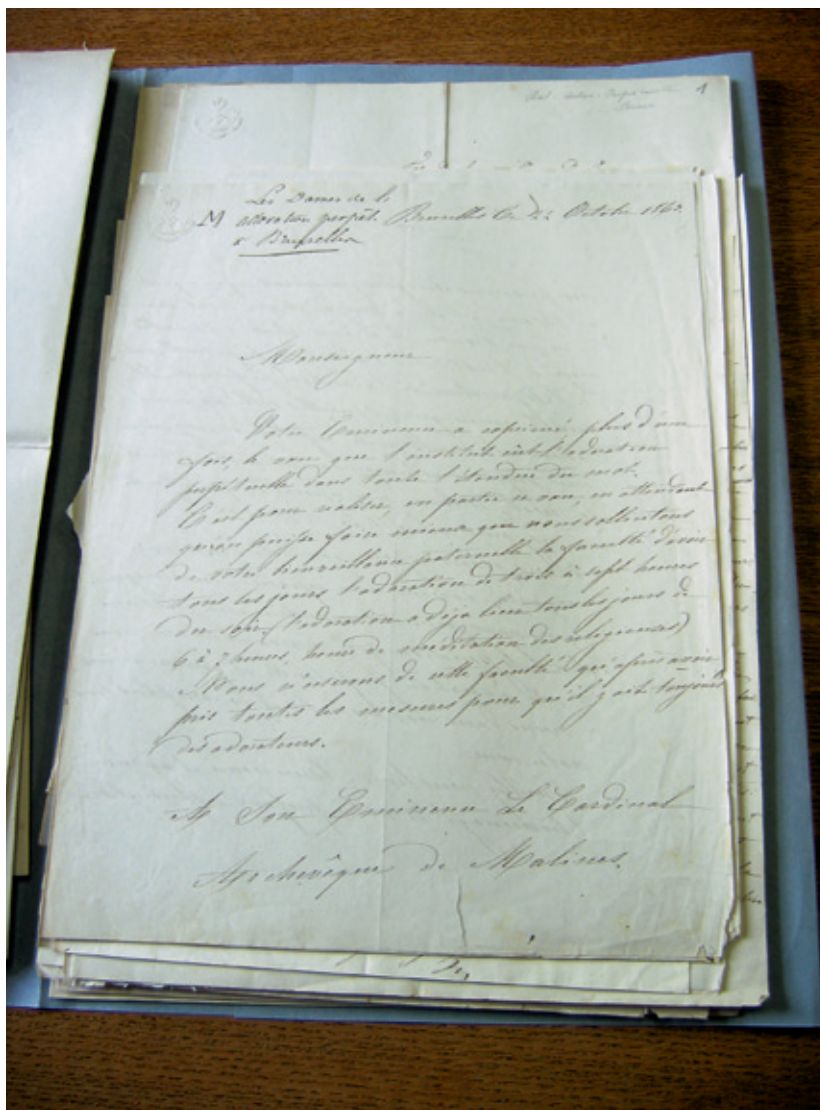 1
M
Les Dames de l
adoration perpét.
à Bruxelles
Bruxelles le Octobre 186
Monseigneur
Votre Eminence a exprimé plus d'une
fois, le vœu que l'institut eût l'adoration
perpétuelle dans toute l'étendue du mot.
C'est pour réaliser, en partie ce vœu, en attendant
qu'on puisse faire mieux que nous sollicitons
de votre bienveillance paternelle la faculté d'avoir
tous les jours l'adoration de trois à sept heures
du soir (l'adoration a déja lieu tous les jours de
6 à 7 heures, heure de méditation des religieuses)
Nous n'userons de cette faculté qu'après avoir
pris toutes les mesures pour qu'il y ait toujours
des adorateurs.
A Son Eminence Le Cardinal
Archevêque de Malines.